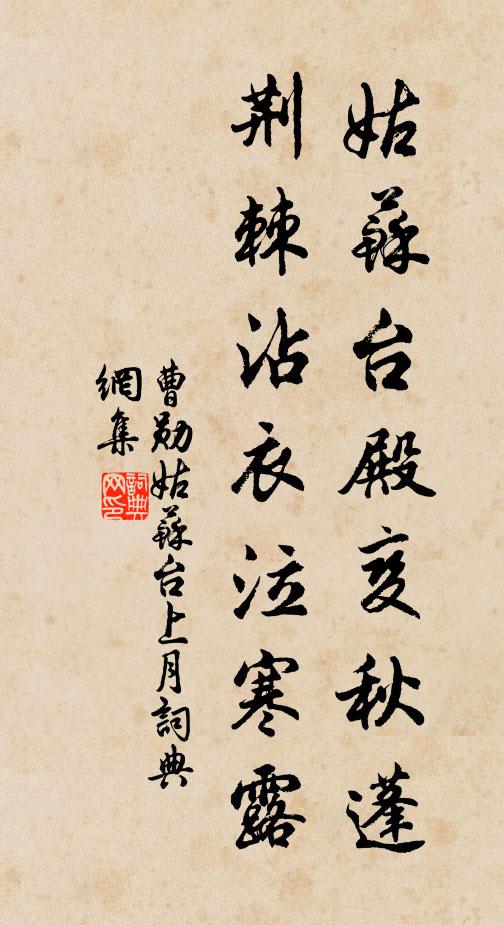 姑蘇台殿变秋蓬
荆棘沾衣泣寒露
曹勛姑蘇台上月詞典
網集
詞典
网印